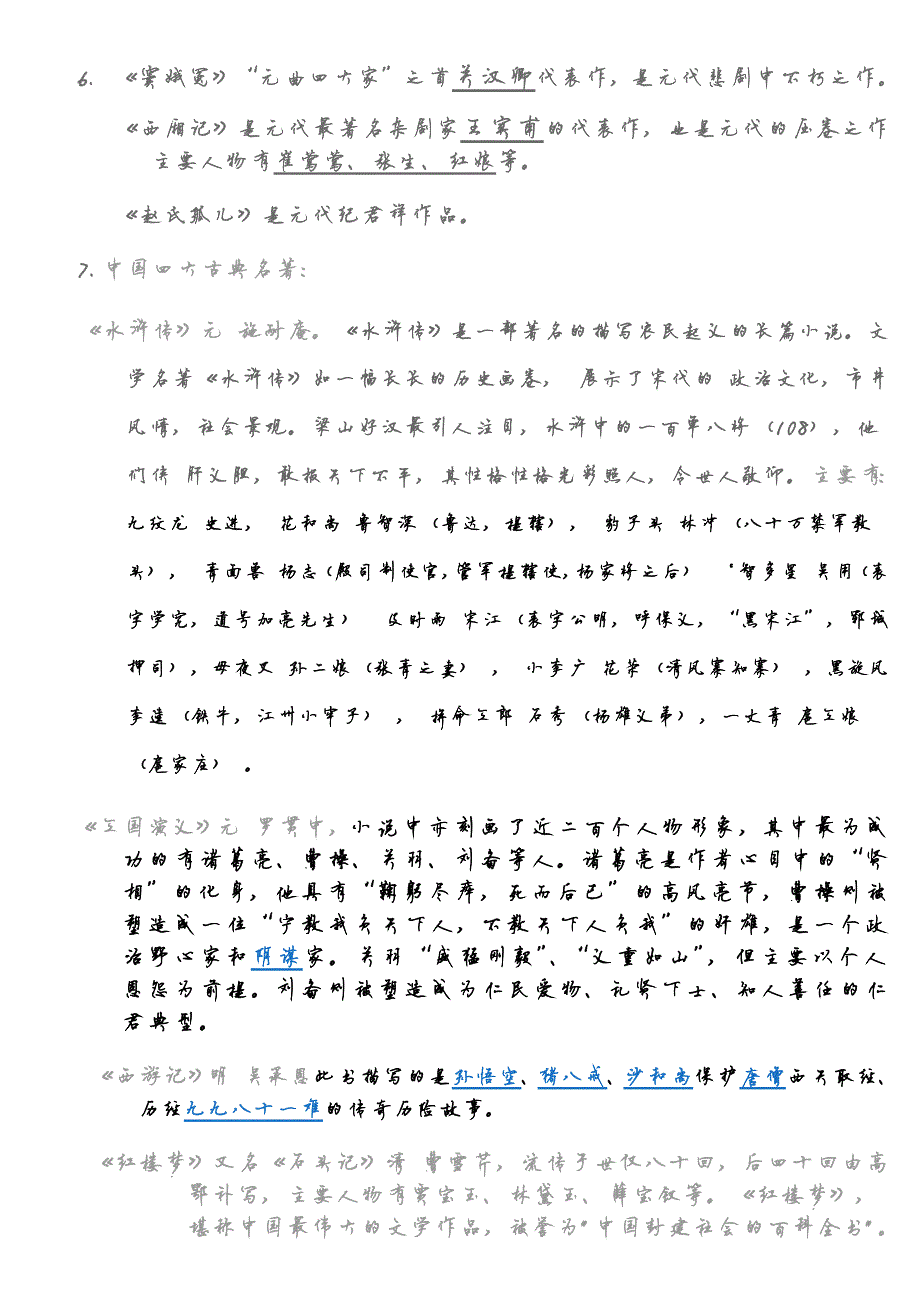 6. 《窦娥冤》“元曲四大家”之首关汉卿代表作，是元代悲剧中不朽之作。
《西厢记》是元代最著名杂剧家王实甫的代表作，也是元代的压卷之作
主要人物有崔莺莺、张生、红娘等。
《赵氏孤儿》是元代纪君祥作品。
7. 中国四大古典名著：
《水浒传》元 施耐庵。《水浒传》是一部著名的描写农民起义的长篇小说。文
学名著《水浒传》如一幅长长的历史画卷， 展示了宋代的 政治文化，市井
风情，社会景观。梁山好汉最引人注目，水浒中的一百单八将（108），他
们侠 肝义胆，敢报天下不平，其性格性格光彩照人，令世人敬仰。主要有:
九纹龙 史进， 花和尚 鲁智深（鲁达，提辖）， 豹子头 林冲（八十万禁军教
头）， 青面兽 杨志（殿司制使官，管军提辖使，杨家将之后） 智多星 吴用（表
字学究，道号加亮先生） 及时雨 宋江（表字公明，呼保义，“黑宋江”，郓城
押司），母夜叉 孙二娘（张青之妻）， 小李广 花荣（清风寨知寨），黑旋风
李逵（铁牛，江州小牢子）， 拼命三郎 石秀（杨雄义弟），一丈青 扈三娘
（扈家庄）。
《三国演义》元 罗贯中，小说中亦刻画了近二百个人物形象，其中最为成
功的有诸葛亮、曹操、关羽、刘备等人。诸葛亮是作者心目中的“贤
相”的化身，他具有“鞠躬尽瘁，死而后已”的高风亮节，曹操则被
塑造成一位“宁教我负天下人，不教天下人负我”的奸雄，是一个政
治野心家和阴谋家。关羽“威猛刚毅”、“义重如山”，但主要以个人
恩怨为前提。刘备则被塑造成为仁民爱物、礼贤下士、知人善任的仁
君典型。
《西游记》明 吴承恩此书描写的是孙悟空、猪八戒、沙和尚保护唐僧西天取经、
历经九九八十一难的传奇历险故事。
《红楼梦》又名《石头记》清 曹雪芹，流传于世仅八十回，后四十回由高
鄂补写，主要人物有贾宝玉、林黛玉、薛宝钗等。《红楼梦》，
堪称中国最伟大的文学作品，被誉为“中国封建社会的百科全书”。